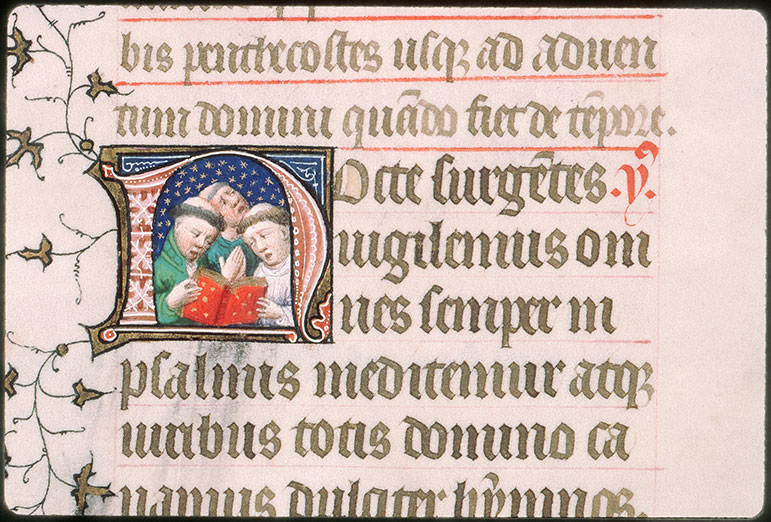 bis penthecostes usq; ad aduen
tum domini quādo fiet de tēpore.
Nocte surgētes. ymº
uigilemus om
nes semper in
psalmis meditemur atq;
uiribus totis domino ca
namus dulciter hȳmnos.